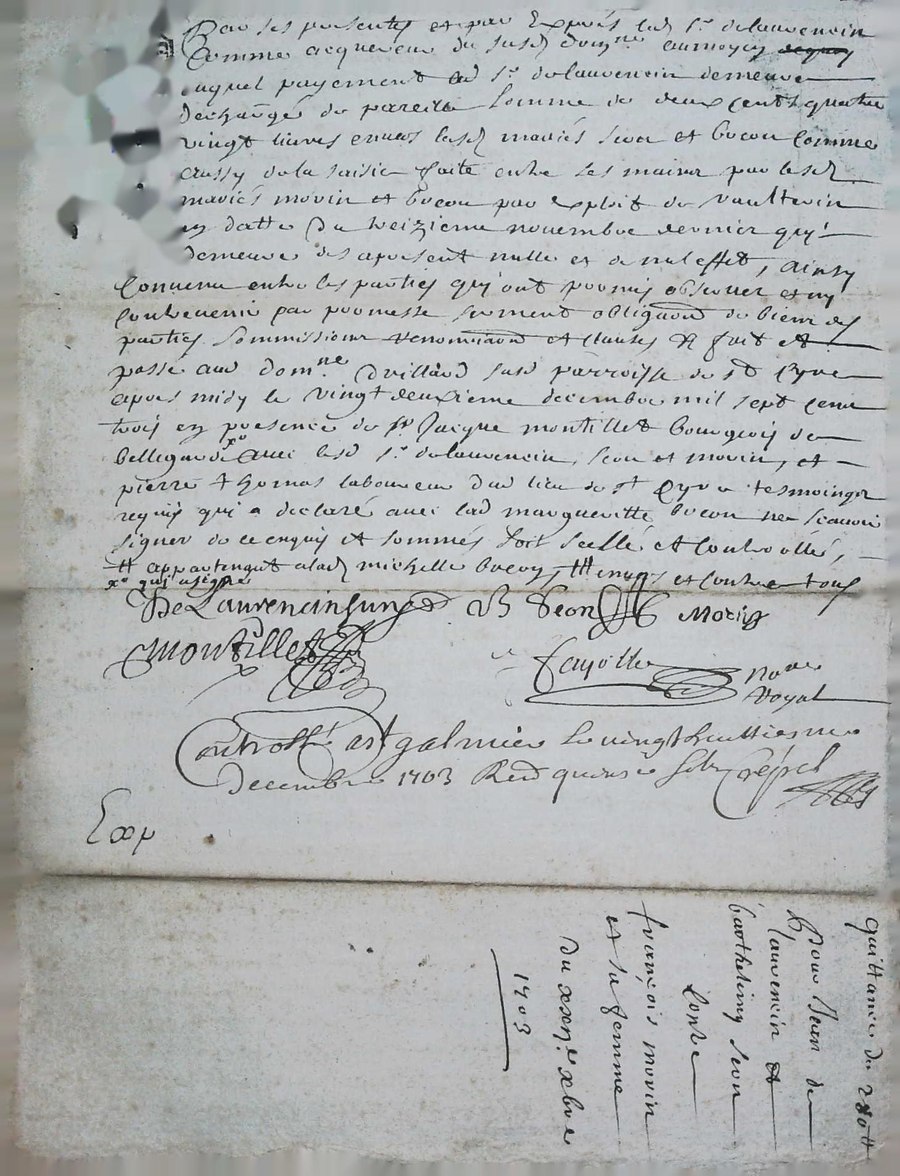 Par ses presentes et par Exprés led sr. delaurencin
comme acquereur du susd dom.ne aumoyen
auquel payement led sr. delaurencin demeure
dechargé de pareille somme de deux cents quatre
vingt livres envers lesd mariés seon et bocou comme
aussy de la saisie faite entre ses mains par lesd
mariés morin et bocou par exploit de vaultrin
en datte du treizieme novembre dernier qui
demeure des apresent nulle et de nul effet, ainsy
convenu entre les parties qui ont promis observer et ny
contrevenir par promesse serment obligaōn de biens des
parties soommissions renonciaōn et clauses fait et
passé aud dom.ne drillard susd parroisse de st Cyre
apres midy le vingt deuxieme decembre mil sept cents
trois en presence de sr Jacque montillet bourgeois de
bellegarde xo avec led sr. delaurencin, seon et morin, et
pierre thomas laboureur dud lieu de st Cyre tesmoings
requis qui a declaré avec lad margueritte bocou ne scavoir
signer de ce enquis et sommés soit scellé et controllé,
# appartenant alad michelle bocou, ## envers et contre tous
xo qui a signé
De Laurencin B Seon Morin
Montillet
Fayolle No.re
Royal
Controllé a st galmier le vingt huittiesme
Decembre 1703 Reçu quinse sols Crespel
Exp
quittance du 280tt
Pour Jean de
Laurencin et
barthelemy seon
Contre
françois morin
et sa femme
du xxii.e xbre
1703